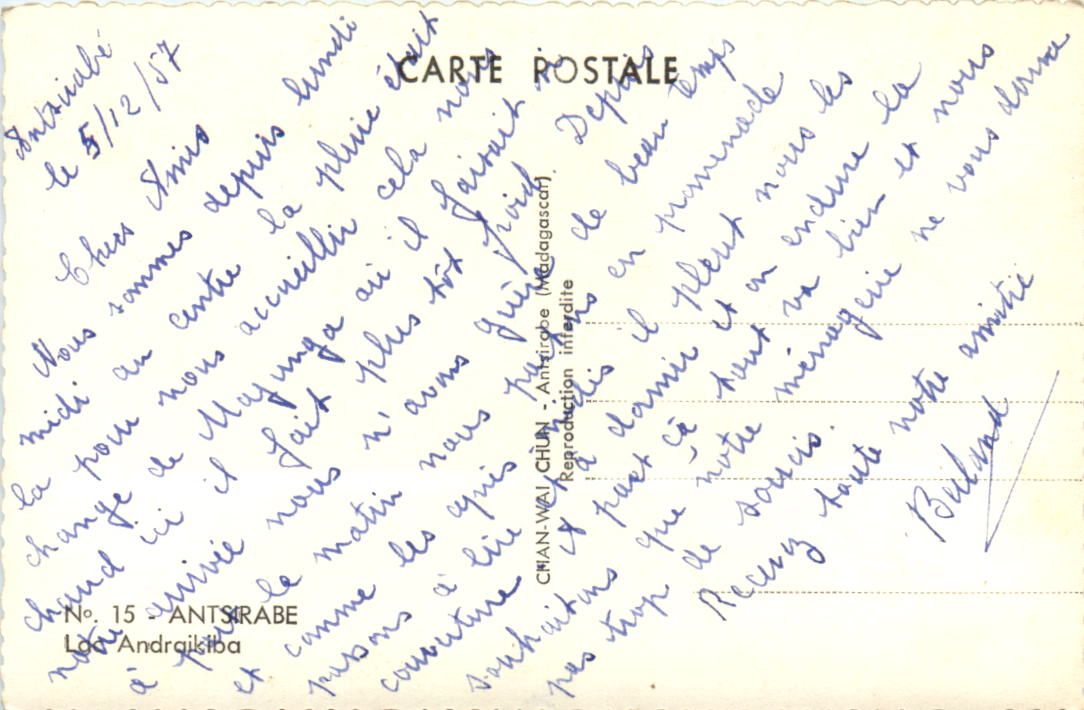 CARTE POSTALE
Antsirabé
le 5/12/57
Chers Amis
Nous sommes depuis lundi
midi au centre la pluie était
la pour nous accueillir cela nous
change de Majunga où il faisait si
chaud ici il fait plus tôt froid. Depuis
notre arrivée nous n'avons guère de beau temps
à part le matin nous partons en promenade
et comme les après midis il pleut nous les
passons à lire et à dormir et on endure la
couverture. A part çà tout va bien et nous
souhaitons que notre ménagerie ne vous donne
pas trop de soucis.
Recevez toute notre amitié
CHAN-WAI CHUN - Antsirabe (Madagascar).
Reproduction interdite
Nº. 15 - ANTSIRABE
Lac Andraikiba